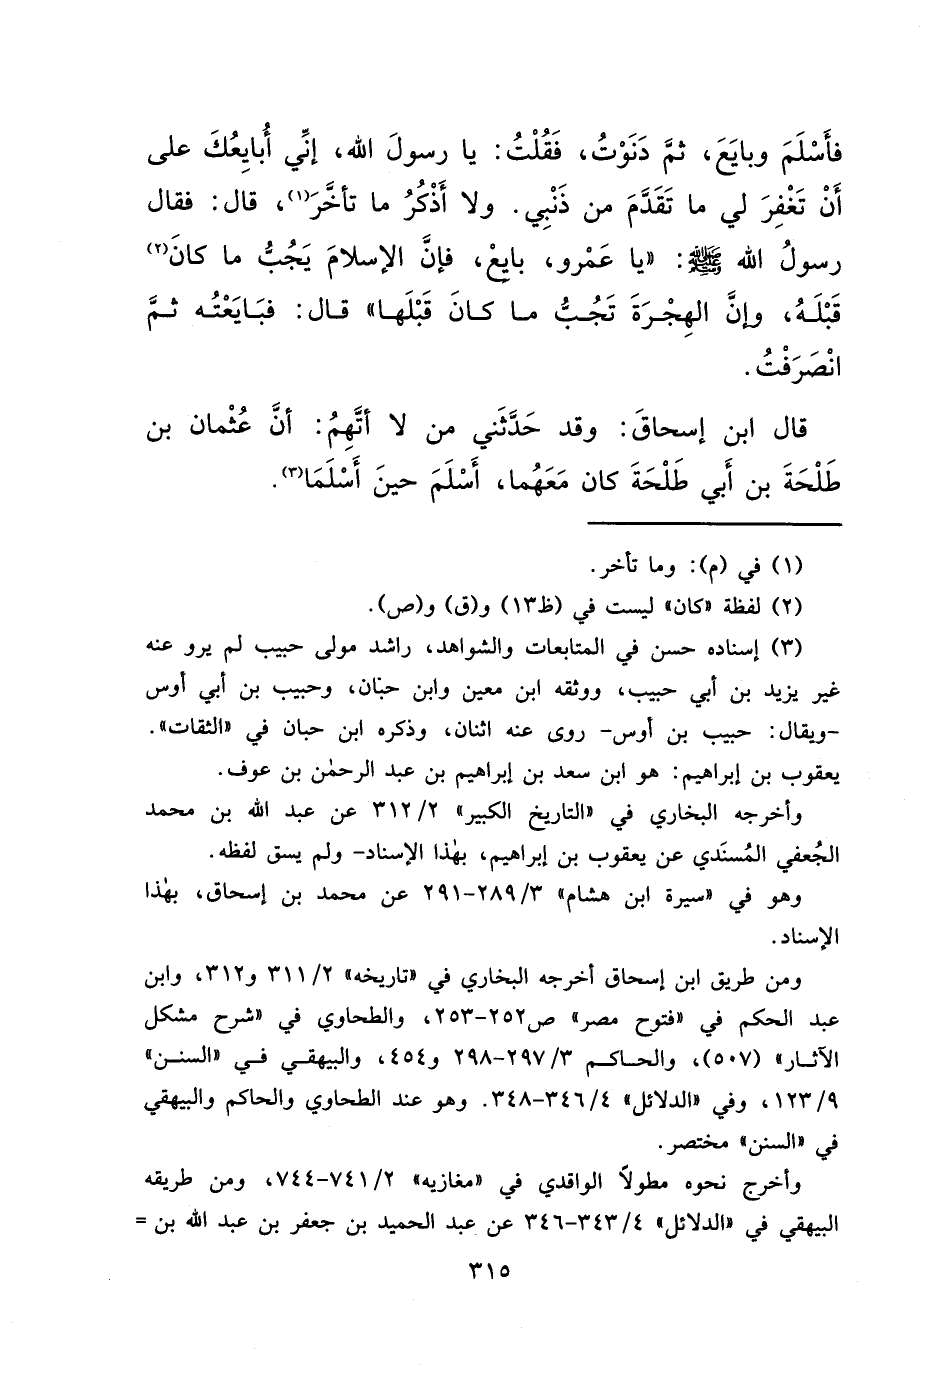 فأَسْلَمَ وبايَعَ، ثمَّ دَنَوْتُ، فَقُلْتُ: يا رسولَ الله، إنِّي أُبايِعُكَ على
أَنْ تَغْفِرَ لي ما تَقَدَّمَ من ذَنْبِي. ولا أَذْكُرُ ما تأخَّرَ(١)، قال: فقال
رسولُ الله ﷺ: «يا عَمْرو، بايِعْ، فإنَّ الإسلامَ يَجُبُّ ما كانَ(٢)
قَبْلَهُ، وإنَّ الهِجْرَةَ تَجُبُّ ما كانَ قَبْلَها» قال: فبَايَعْتُه ثمَّ
انْصَرَفْتُ.
قال ابن إسحاقَ: وقد حَدَّثَني من لا أتَّهِمُ: أنَّ عُثْمان بن
طَلْحَةَ بن أَبي طَلْحَةَ كان مَعَهُما، أَسْلَمَ حينَ أَسْلَمَا(٣).
(١) في (م): وما تأخر.
(٢) لفظة «كان» ليست في (ظ١٣) و(ق) و(ص).
(٣) إسناده حسن في المتابعات والشواهد، راشد مولى حبيب لم يرو عنه
غير يزيد بن أبي حبيب، ووثقه ابن معين وابن حبّان، وحبيب بن أبي أوس
-ويقال: حبيب بن أوس- روى عنه اثنان، وذكره ابن حبان في «الثقات».
يعقوب بن إبراهيم: هو ابن سعد بن إبراهيم بن عبد الرحمٰن بن عوف.
وأخرجه البخاري في «التاريخ الكبير» ٣١٢/٢ عن عبد الله بن محمد
الجُعفي المُسنَدي عن يعقوب بن إبراهيم، بهٰذا الإسناد- ولم يسق لفظه.
وهو في «سيرة ابن هشام» ٢٨٩/٣-٢٩١ عن محمد بن إسحاق، بهٰذا
الإسناد.
ومن طريق ابن إسحاق أخرجه البخاري في «تاريخه» ٣١١/٢ و٣١٢، وابن
عبد الحكم في «فتوح مصر» ص٢٥٢-٢٥٣، والطحاوي في «شرح مشكل
الآثار» (٥٠٧)، والحاكم ٢٩٧/٣-٢٩٨ و٤٥٤، والبيهقي في «السنن»
١٢٣/٩، وفي «الدلائل» ٣٤٦/٤-٣٤٨. وهو عند الطحاوي والحاكم والبيهقي
في «السنن» مختصر.
وأخرج نحوه مطولاً الواقدي في «مغازيه» ٧٤١/٢-٧٤٤، ومن طريقه
البيهقي في «الدلائل» ٣٤٣/٤-٣٤٦ عن عبد الحميد بن جعفر بن عبد الله بن =
٣١٥